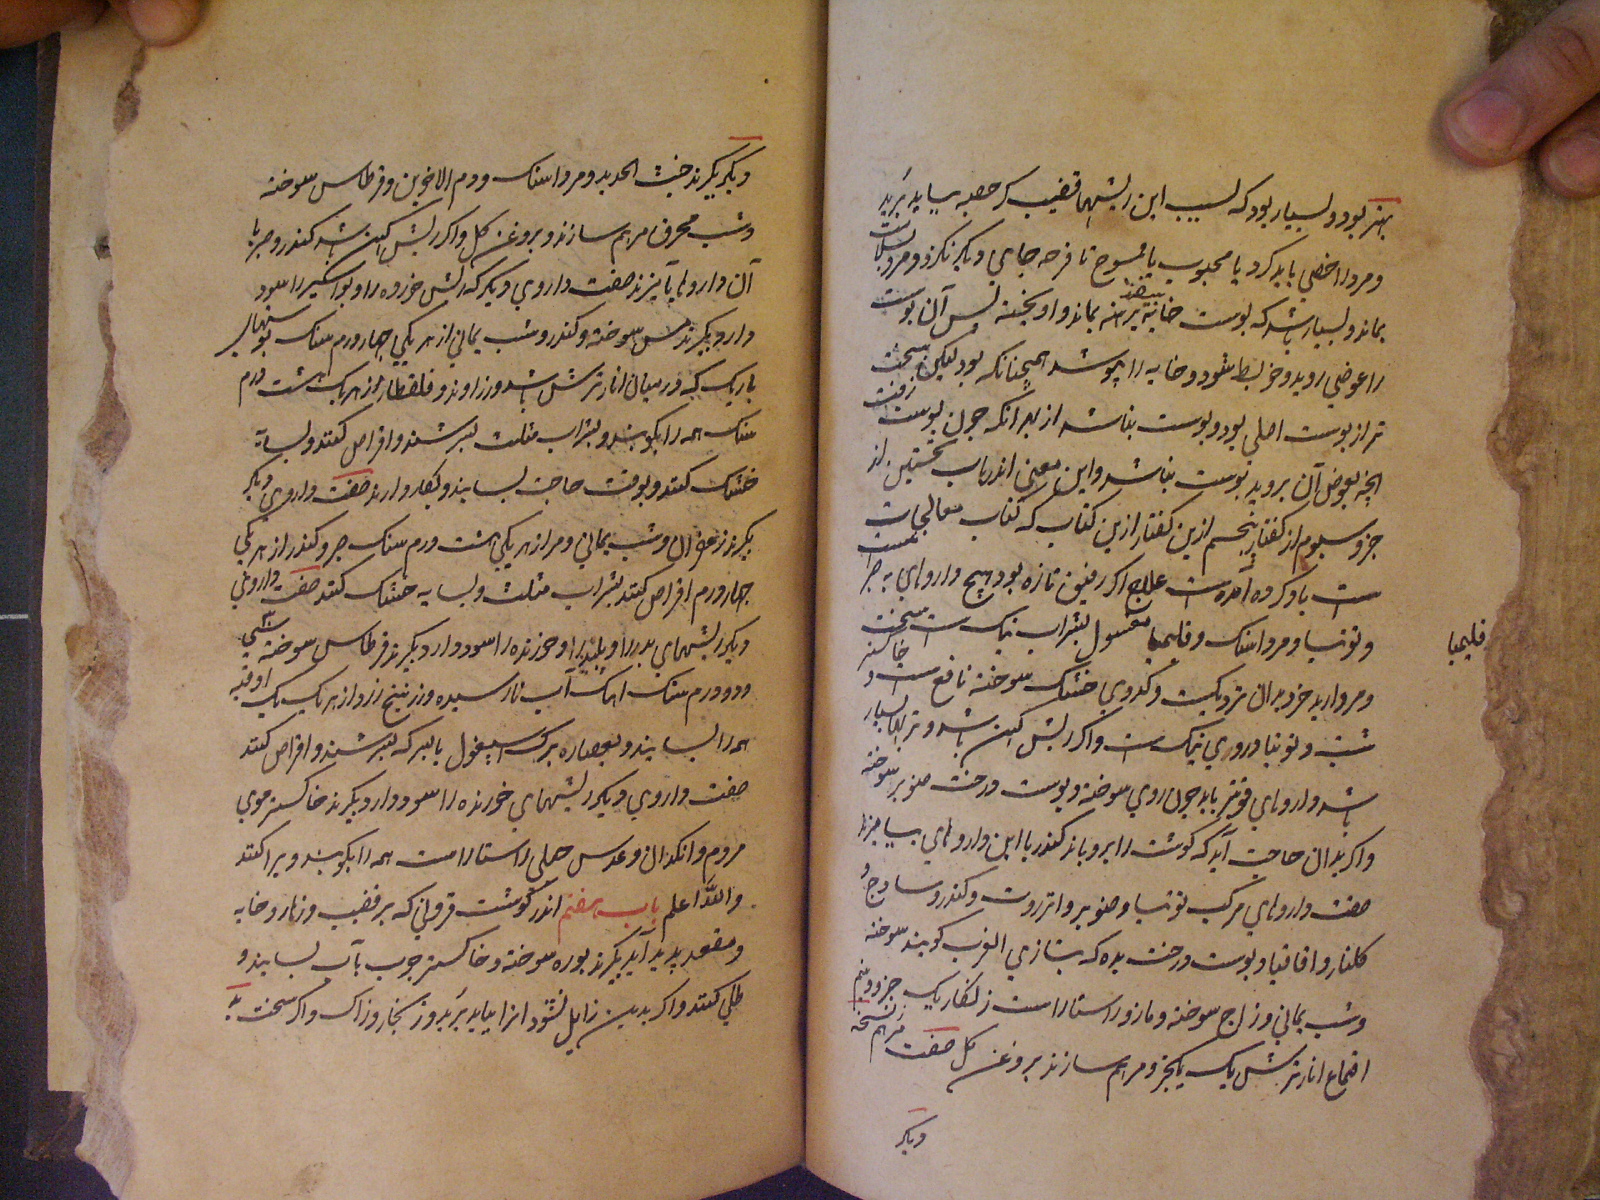 بهتر بود و بسیار بود که بسبب این ریشها قضیب و خصیه بباید برید
و مرد را خصی باید کرد یا محبوب یا ممسوح تا قرحه جای دیکر نکرد و مرد سلامت
بماند و بسیار باشد که پوست خایه بیفتد برهنه بماند و اویخته پس آن پوست
را عوضی روید و خریطه شود و خایه را بپوشد همچنانکه بود لیکن سخت
تر از پوست اصلی بود و پوست نباشد از بهر انکه چون پوست رفت
انچه بعوض آن بروید پوست نباشد و این معنی اندر باب نخستین از
جزو سیوم از کفتار پنجم ازین کفتار ازین کتاب که کتاب معالجات
است یاد کرده آمده است علاج اکر ریش تازه بود هیچ داروای به صبر نیست
و توتیا و مرداسنک و قلیمیا مغسول بشراب نیک است سخت
قلیمیا
و مروارید خرد بدان نزدیکست و کدوی خشک سوخته نافع است و خاکستر
شبت و توتیا و روی نیک است و اکر ریش کهن باشد و تر بسیار
باشد داروهای قویتر باید چون روی سوخته و پوست درخت صنوبر سوخته
و اکر بدان حاجت آید که کوشت را برویاند کندر با این داروهای بیامیزند
صفت داروهای مرکب توتیا و صنوبر و انزروت و کندر و ساذج و
کلنار و اقاقیا و پوست درخت بده که بتازی الغرب کویند سوخته
و شب یمانی و زاج سوخته و مازو راستاراست زنکار یک جزو و نیم
اقماع انار ترش یک یکجزو مرهم سازند بروغن کل صفت مرهم نسخه
دیکر
دیکر بکیرند خبث الحدید و مرداسنک و دم الاخوین و قرطاس سوخته
و شب محرق مرهم سازند و بروغن کل و اکر ریش کهن باشد کندر و صبر با
آن داروها بیامیزند صفت داروی دیکر که ریش خورده را و بواسیر را سود
دارد بکیرند مس سوخته و کندر و شب یمانی از هر یکی چهار درم سنک پوستهای
باریک که در میان انار ترش باشد و زراوند و قلقطار از هر یک هشت درم
سنک همه را بکوبند و بشراب مثلث بسرشند و اقراص کنند و بسایه
خشک کنند و بوقت حاجت بسایند و بکار دارند صفت داروی دیکر
بکیرند زعفران و شب یمانی و مر از هر یکی هشت درم سنک صبر و کندر از هر یکی
چهار درم اقراص کنند بشراب مثلث و بسایه خشک کنند صفت داروئی
دیکر ریشهای بد را و پلید را و خورنده را سود دارد بکیرند قرطاس سوخته سی
و دو درم سنک اهک آب نارسیده و زرنیخ زرد از هر یک یک اوقیه
همه را بسایند و بعصاره برک اسپغول یا بسرکه بسرشند و اقراص کنند
صفت داروی دیکر ریشهای خورنده را سود دارد بکیرند خاکستر موی
مردم و انکدان و عدس جملی راستاراست همه را بکوبند و براکنند
و الله اعلم باب هفتم اندر کوشت فزونی که بر قضیب و زهار و خایه
و مقعد پدید آید بکیرند بوره سوخته و خاکستر چوب بآب بسایند و
طلی کنند و اکر بدین زایل نشود انرا بباید برید و زنکار و زاک و اکر سخت بد